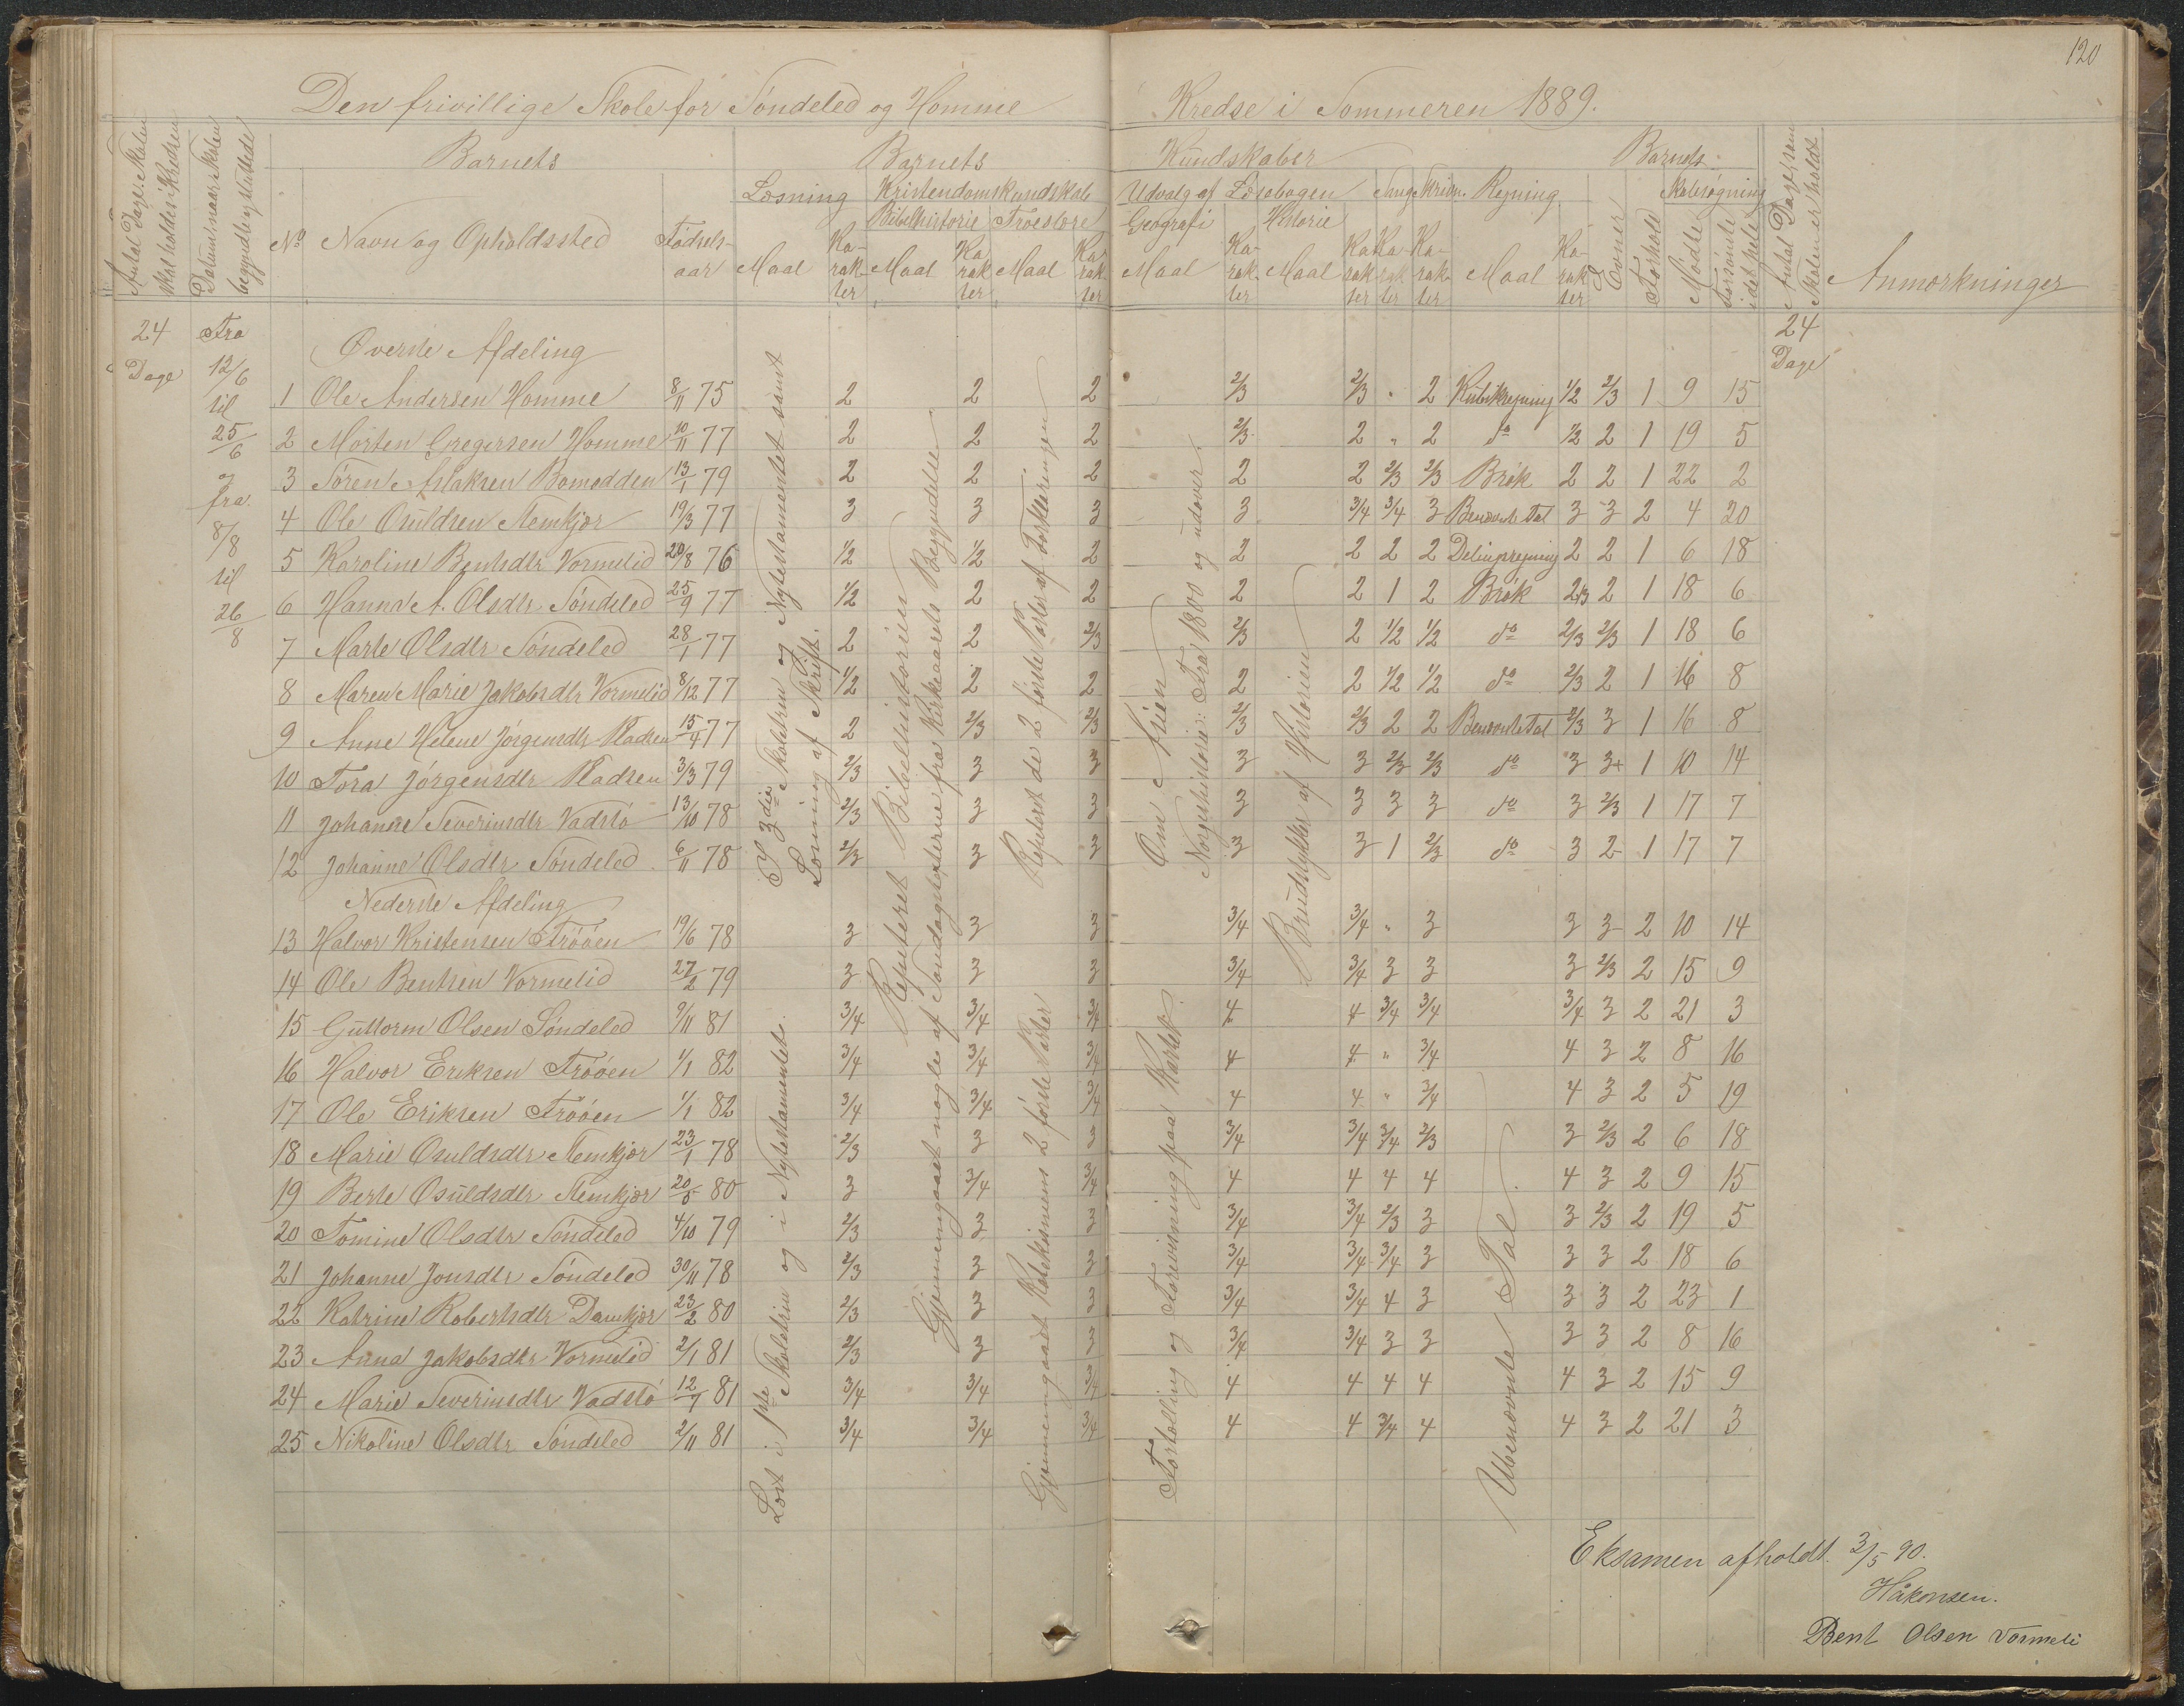 120
Den frivillige Skole for Söndeled og Homme Kredse i Sommeren 1889.
Antal Dage Skolen skal holdes i Kredsen
Datum naar Skolen begyndte og sluttede
Barnets
Barnets
Kundskaber
Barnets
No
Navn og Opholdssted
Fødselsaar
Læsning
Kristendomskundskab
Udvalg af Læsebogen
Sang
Skrivn.
Regning
Skolesøgning
Bibelhistorie
Troeslære
Geografi
Historie
Maal Karakter Maal Karakter Maal Karakter
Maal Karakter Maal Karakter Karakter Karakter Maal Karakter
Evner
Forhold
Mødte
Forsømte i det hele
Antal Dage som Skolen er holdt
Anmærkninger
24 Dage
Fra 12/6 til 25/6 og fra 8/8 til 26/8
24 Dage
Øverste Afdeling
1 Ole Andersen Homme 8/11 75 2 2 2 2/3 2/3 " 2 Kubikregning 1/2 2/3 1 9 15
2 Morten Gregersen Homme 10/11 77 2 2 2 2/3 2 " 2 do 1/2 2 1 19 5
3 Søren Aslaksen Bomodden 13/1 79 2 2 2 2 2 2/3 2/3 Brøk 2 2 1 22 2
4 Ole Osuldsen Stemkjær 19/3 77 3 3 3 3 3/4 3/4 3 Benævnte Tal 3 3 2 4 20
5 Karoline Bentsdtr Vormelid 20/8 76 1/2 1/2 2 2 2 2 2 Delingsregning 2 2 1 6 18
6 Hanna A. Olsdtr Söndeled 25/9 77 1/2 2 2 2 2 1 2 Brøk 2/3 2 1 18 6
7 Marte Olsdtr Söndeled 28/1 77 2 2 2/3 2/3 2 1/2 1/2 do 2/3 2/3 1 18 6
8 Maren Marie Jakobsdtr Vormelid 8/12 77 1/2 2 2 2 2 1/2 1/2 do 2/3 2 1 16 8
9 Anne Helene Jörgensdtr Pladsen 15/4 77 2 2/3 2/3 2/3 2/3 2 2 Benævnte Tal 2/3 3 1 16 8
10 Tora Jörgensdtr Pladsen 3/3 79 2/3 3 3 3 3 2/3 2/3 do 3 3+ 1 10 14
11 Johanne Severinsdtr Vadstö 13/10 78 2/3 3 3 3 3 3 3 do 3 2/3 1 17 7
12 Johanne Olsdtr Söndeled 6/11 78 2/3 3 3 3 3 1 2/3 do 3 2- 1 17 7
Nederste Afdeling
13 Halvor Kristensen Trööen 19/6 78 3 3 3 3/4 3/4 " 3 3 3 2 10 14
14 Ole Bentsen Vormelid 27/2 79 3 3 3 3/4 3/4 3 3 3 2/3 2 15 9
15 Guttorm Olsen Söndeled 9/11 81 3/4 3/4 3/4 4 4 3/4 3/4 3/4 3 2 21 3
16 Halvor Eriksen Trööen 1/1 82 3/4 3/4 3/4 4 4 " 3/4 4 3 2 8 16
17 Ole Eriksen Trööen 1/1 82 3/4 3/4 3/4 4 4 " 3/4 4 3 2 5 19
18 Marie Osuldsdtr Stemkjær 23/1 78 2/3 3 3 3/4 3/4 3/4 2/3 3 2/3 2 6 18
19 Berte Osuldsdtr Stemkjær 20/5 80 3 3/4 3/4 4 4 4 4 4 3 2 9 15
20 Tomine Olsdtr Söndeled 4/10 79 2/3 3 3 3/4 3/4 2/3 3 3 2/3 2 19 5
21 Johanne Jonsdtr Söndeled 30/11 78 2/3 3 3 3/4 3/4 3/4 3 3 3 2 18 6
22 Katrine Robertsdtr Damkjær 23/2 80 2/3 3 3 3/4 3/4 4 3 3 3 2 23 1
23 Anna Jakobsdtr Vormelid 2/1 81 2/3 3 3 3/4 3/4 3 3 3 3 2 8 16
24 Marie Severinsdtr Vadstö 12/7 81 3/4 3/4 3/4 4 4 4 4 4 3 2 15 9
25 Nikoline Olsdtr Söndeled 2/11 81 3/4 3/4 3/4 4 4 3/4 4 4 3 2 21 3
I 3die Skoletrin og Nytestamentet samt
Læsning af Skrift.
Læst i 1ste Skoletrin og i Nytestamentet.
Repeteret Bibelhistorien
Gjennemgaaet nogle af Søndagsteksterne fra Kirkeaarets Begyndelse.
Repeteret de 2 første Parter af Forklaringen
Gjennemgaaet Katekismens 2 første Parter
Om Asien
Norgeshistorie: Fra 1800 og udover.
Fortælling og Forevisning paa Kartet.
Brudstykker af Historien
Ubenævnte Tal.
Eksamen afholdt. 3/5 90.
Håkonsen.
Bent Olsen Vormeli